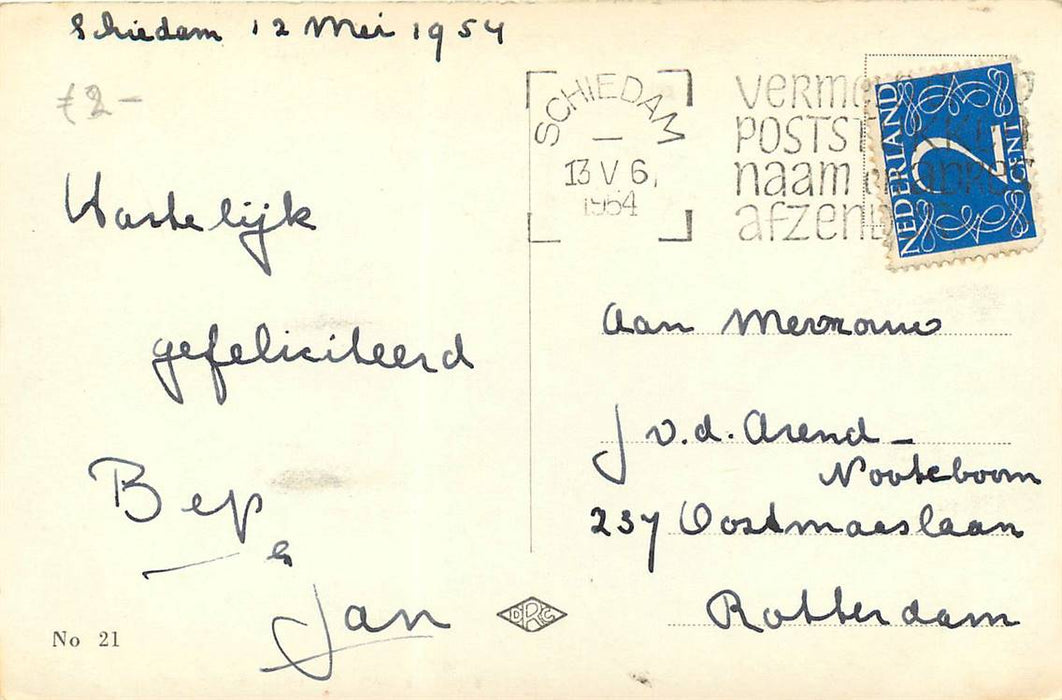 Schiedam 12 Mei 1954
£2-
Hartelijk
gefeliciteerd
Bep
&
Jan
No 21
SCHIEDAM
13 V 6
1954
POSTST
naam en adres
NEDERLAND
2
CENT
Aan Mevrouw
J v.d. Arend -
Nooteboom
237 Oostmaaslaan
Rotterdam